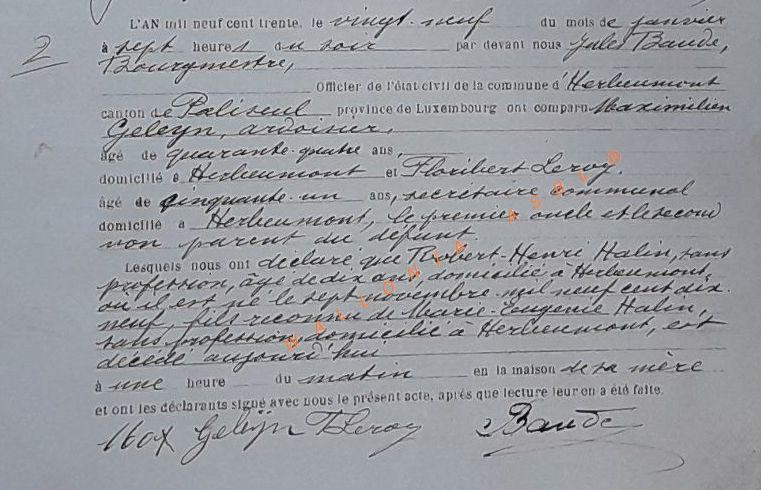 L'AN mil neuf cent trente, le vingt-neuf du mois de janvier
2 à sept heures du soir par devant nous Jules Baude,
Bourgmestre,
Officier de l'état civil de la commune d'Herbeumont
canton de Paliseul province de Luxembourg ont comparu Maximilien
Geleyn, ardoisier,
âgé de quarante-quatre ans,
domicilié à Herbeumont et Floribert Leroy,
âgé de cinquante-un ans, secrétaire communal
domicilié à Herbeumont, le premier oncle et le second
non parent du défunt.
Lesquels nous ont déclaré que Robert-Henri Halin, sans
profession, âgé de dix ans, domicilié à Herbeumont,
où il est né le sept novembre mil neuf cent dix-
neuf, fils reconnu de Marie-Eugénie Halin,
sans profession, domicilié à Herbeumont, est
décédé aujourd'hui
à une heure du matin en la maison de sa mère
et ont les déclarants signé avec nous le présent acte, après que lecture leur en a été faite.
Max Geleyn FLeroy Baude
WALLONIA ASBL ©